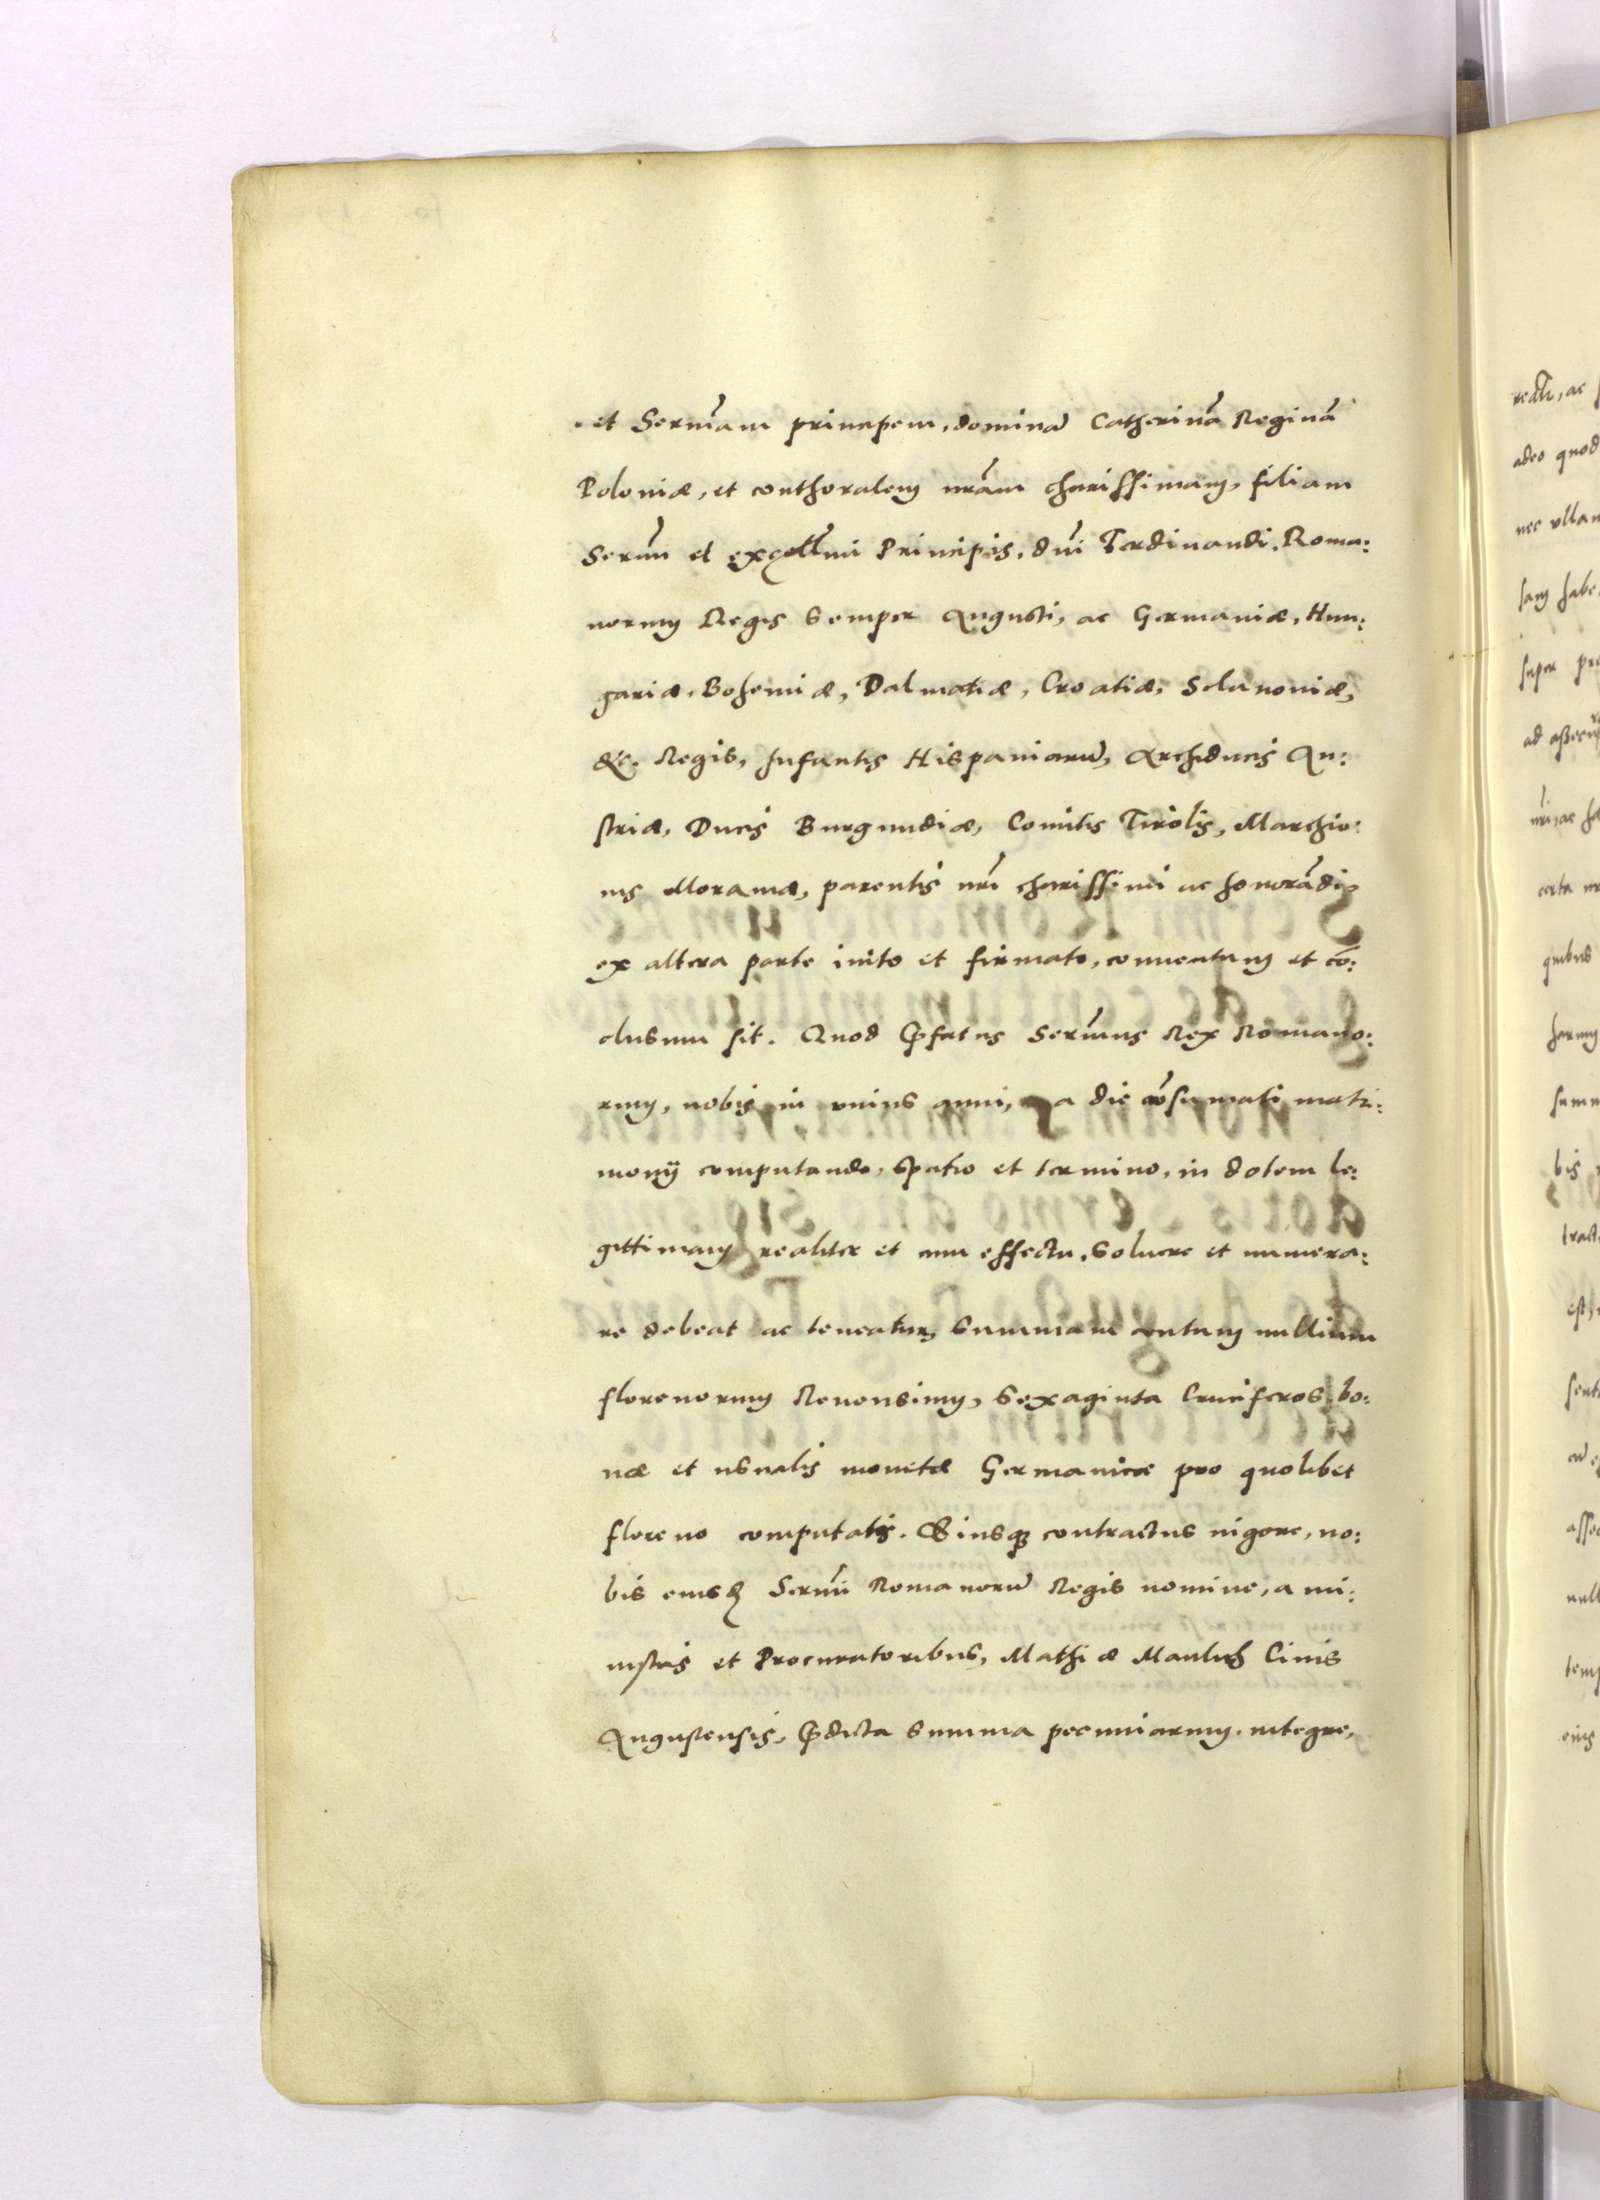 et Sermam principem, dominã Catherinã Reginã
Poloniæ, et conthoralem nrãm charissimam, filiam
Sermi et excellmi Principis, dni Ferdinandi. Roma:
norum Regis Semper Augusti, ac Germaniæ, Hun:
gariæ. Bohemiæ, Dalmatiæ, Croatiæ, Sclavoniæ,
&c. Regis, Infantis Hispaniarũ, Archiducis Au:
striæ, Ducis Burgundiæ, Comitis Tirolis, Marchio:
nis Moraviæ, parentis nri charissimi ac honorãdi,
ex altera parte inito et firmato, conventum et cõ:
clusum sit. Quod Pfatus Sermus Rex Romano:
rum, nobis in unius anni, a die cõsumati matri:
monij computando, spatio et termino, in dotem le:
gittimam realiter et cum effectu, Solvere et numera:
re debeat ac teneatur, Summam centum millium
florenorum Renensium, Sexaginta Cruciferos bo:
næ et usualis monetæ Germanicæ pro quolibet
floreno computatis. Eiusq contractus vigore, no:
bis eiusd Sermi Romanorũ Regis nomine, a mi:
nistris et Procuratoribus, Mathiæ Civis
Augustensis, Pdicta Summa pecuniarum. integre,
redtr, ac
adeo quod
nec ullam
super
quibus
harum
bis